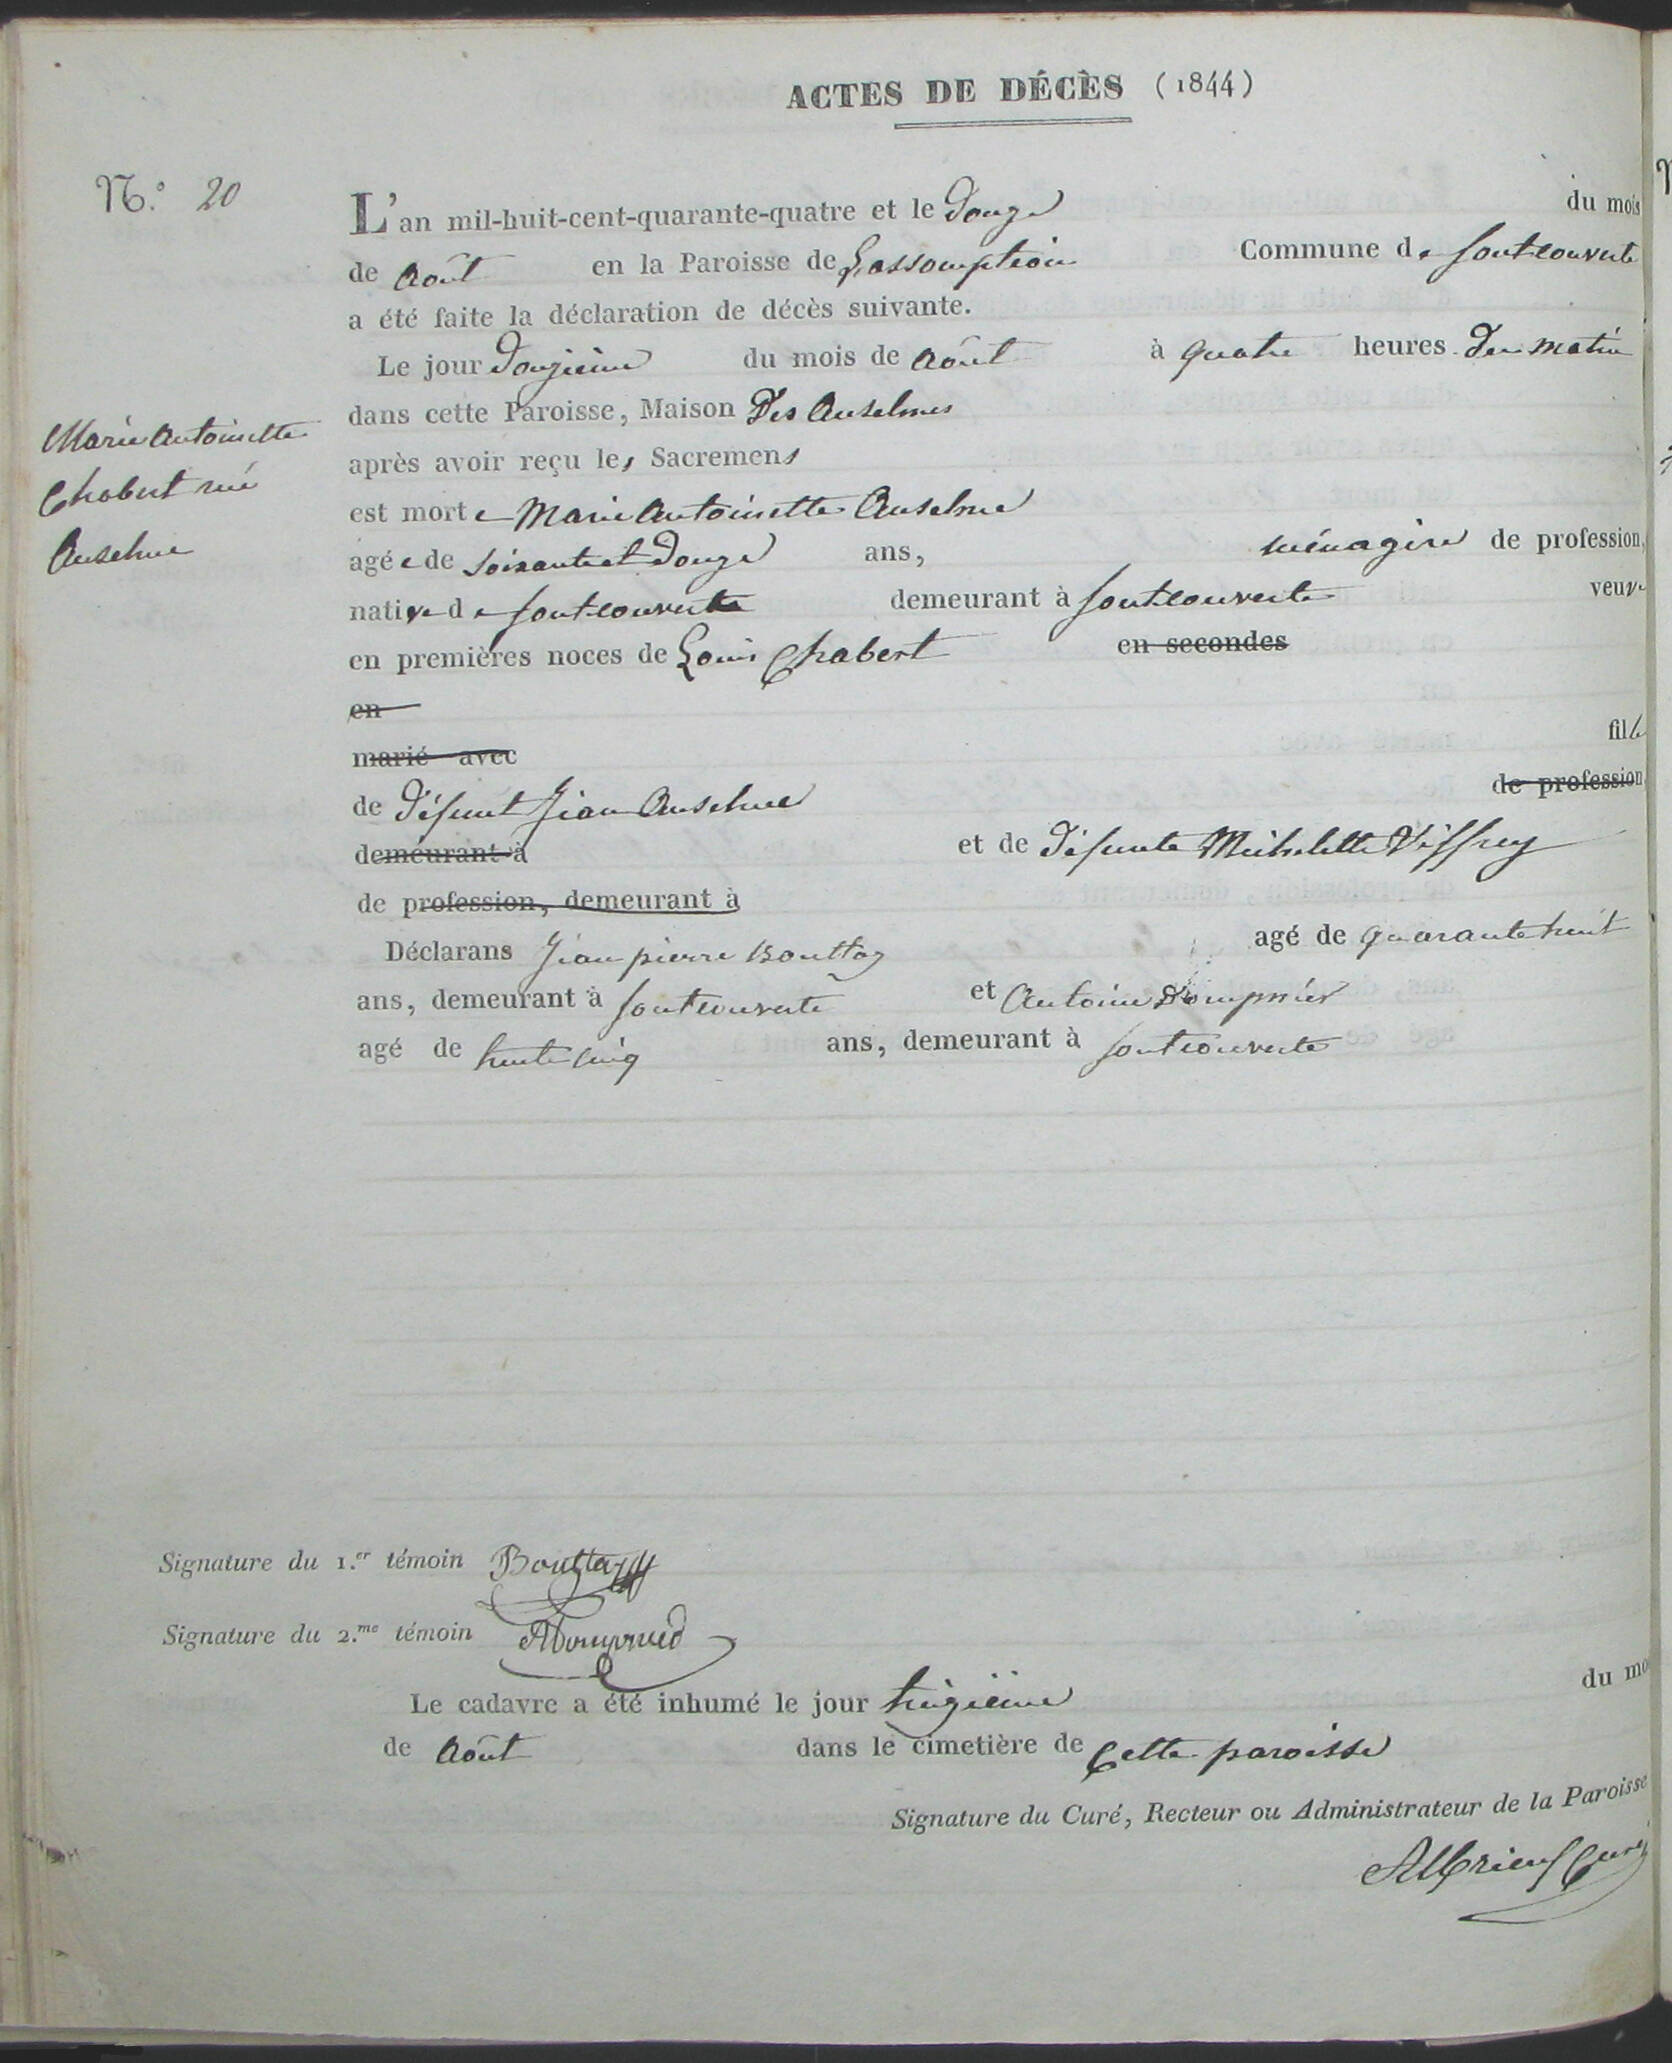 ACTES DE DÉCÈS (1844)
N.° 20
L'an mil-huit-cent-quarante-quatre et le Douze du mois
de Août en la Paroisse de Lassomption Commune de fontcouverte
a été faite la déclaration de décès suivante.
Le jour Douzieme du mois de Août à quatre heures du matin
dans cette Paroisse, Maison Des Anselmes
Marie Antoinette
Chabert née
Anselme
après avoir reçu les Sacremens
est morte Marie Antoinette Anselme
agée de soixante et Douze ans, ménagère de profession,
native de fontcouverte demeurant à fontcouverte veuve
en premières noces de Louis Chabert en secondes
en
marié avec fille
de Défunt Jean Anselme de profession
demeurant à et de Défunte Michelette Viffrey
de profession, demeurant à
Déclarans Jean pierre Bouttaz agé de quarante huit
ans, demeurant à fontcouverte et Antoine Dompnier
agé de trente cinq ans, demeurant à fontcouverte
Signature du 1.er témoin Bouttaz
Signature du 2.me témoin ADompnier
Le cadavre a été inhumé le jour treizieme du mo
de Août dans le cimetière de Cette paroisse
Signature du Curé, Recteur ou Administrateur de la Paroisse
Curé